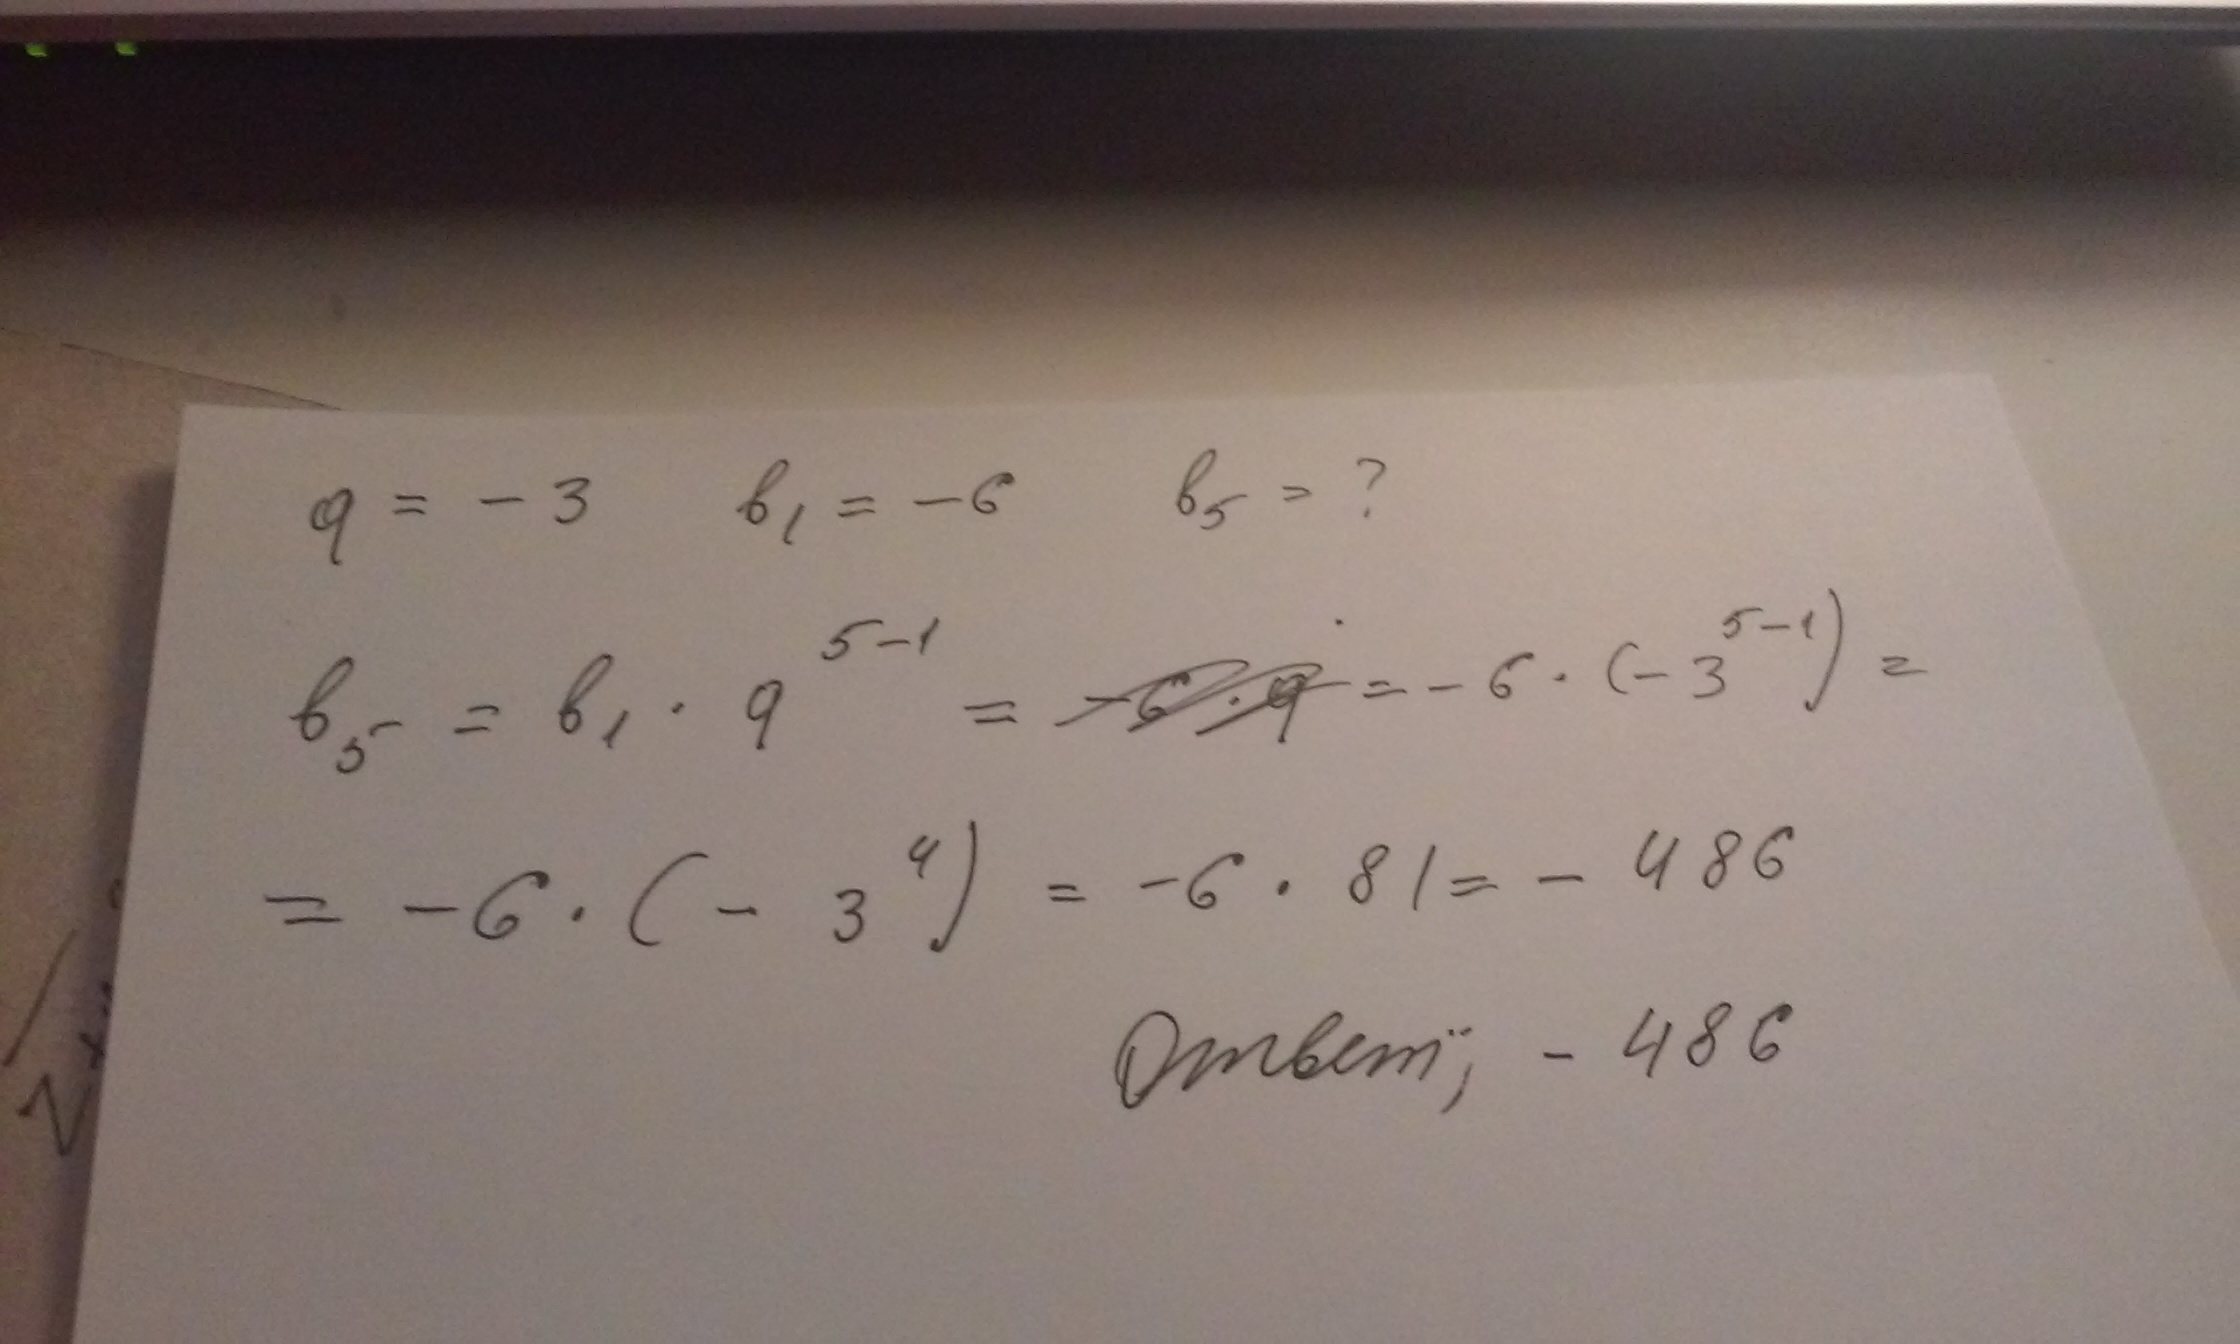 q = -3 b₁ = -6 b₅ = ?
b₅ = b₁ · q⁵⁻¹ = = -6 · (-3⁵⁻¹) =
= -6 · (-3⁴) = -6 · 81 = -486
Ответ; -486